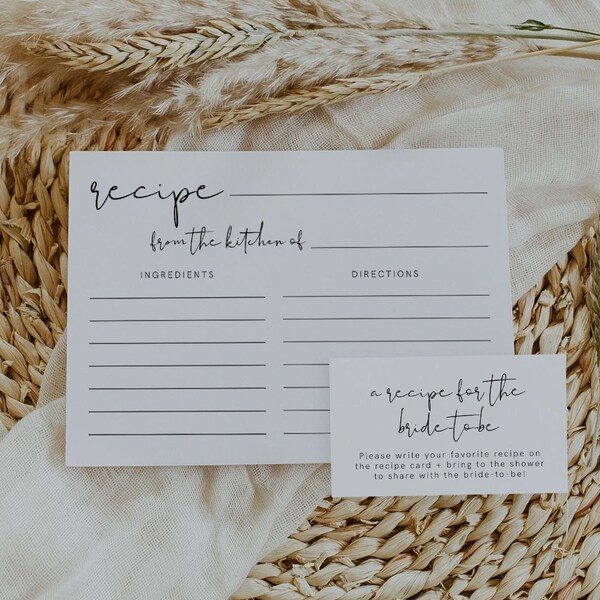 recipe
from the kitchen of
INGREDIENTS DIRECTIONS
a recipe for the
bride-to-be
Please write your favorite recipe on
the recipe card + bring to the shower
to share with the bride-to-be!